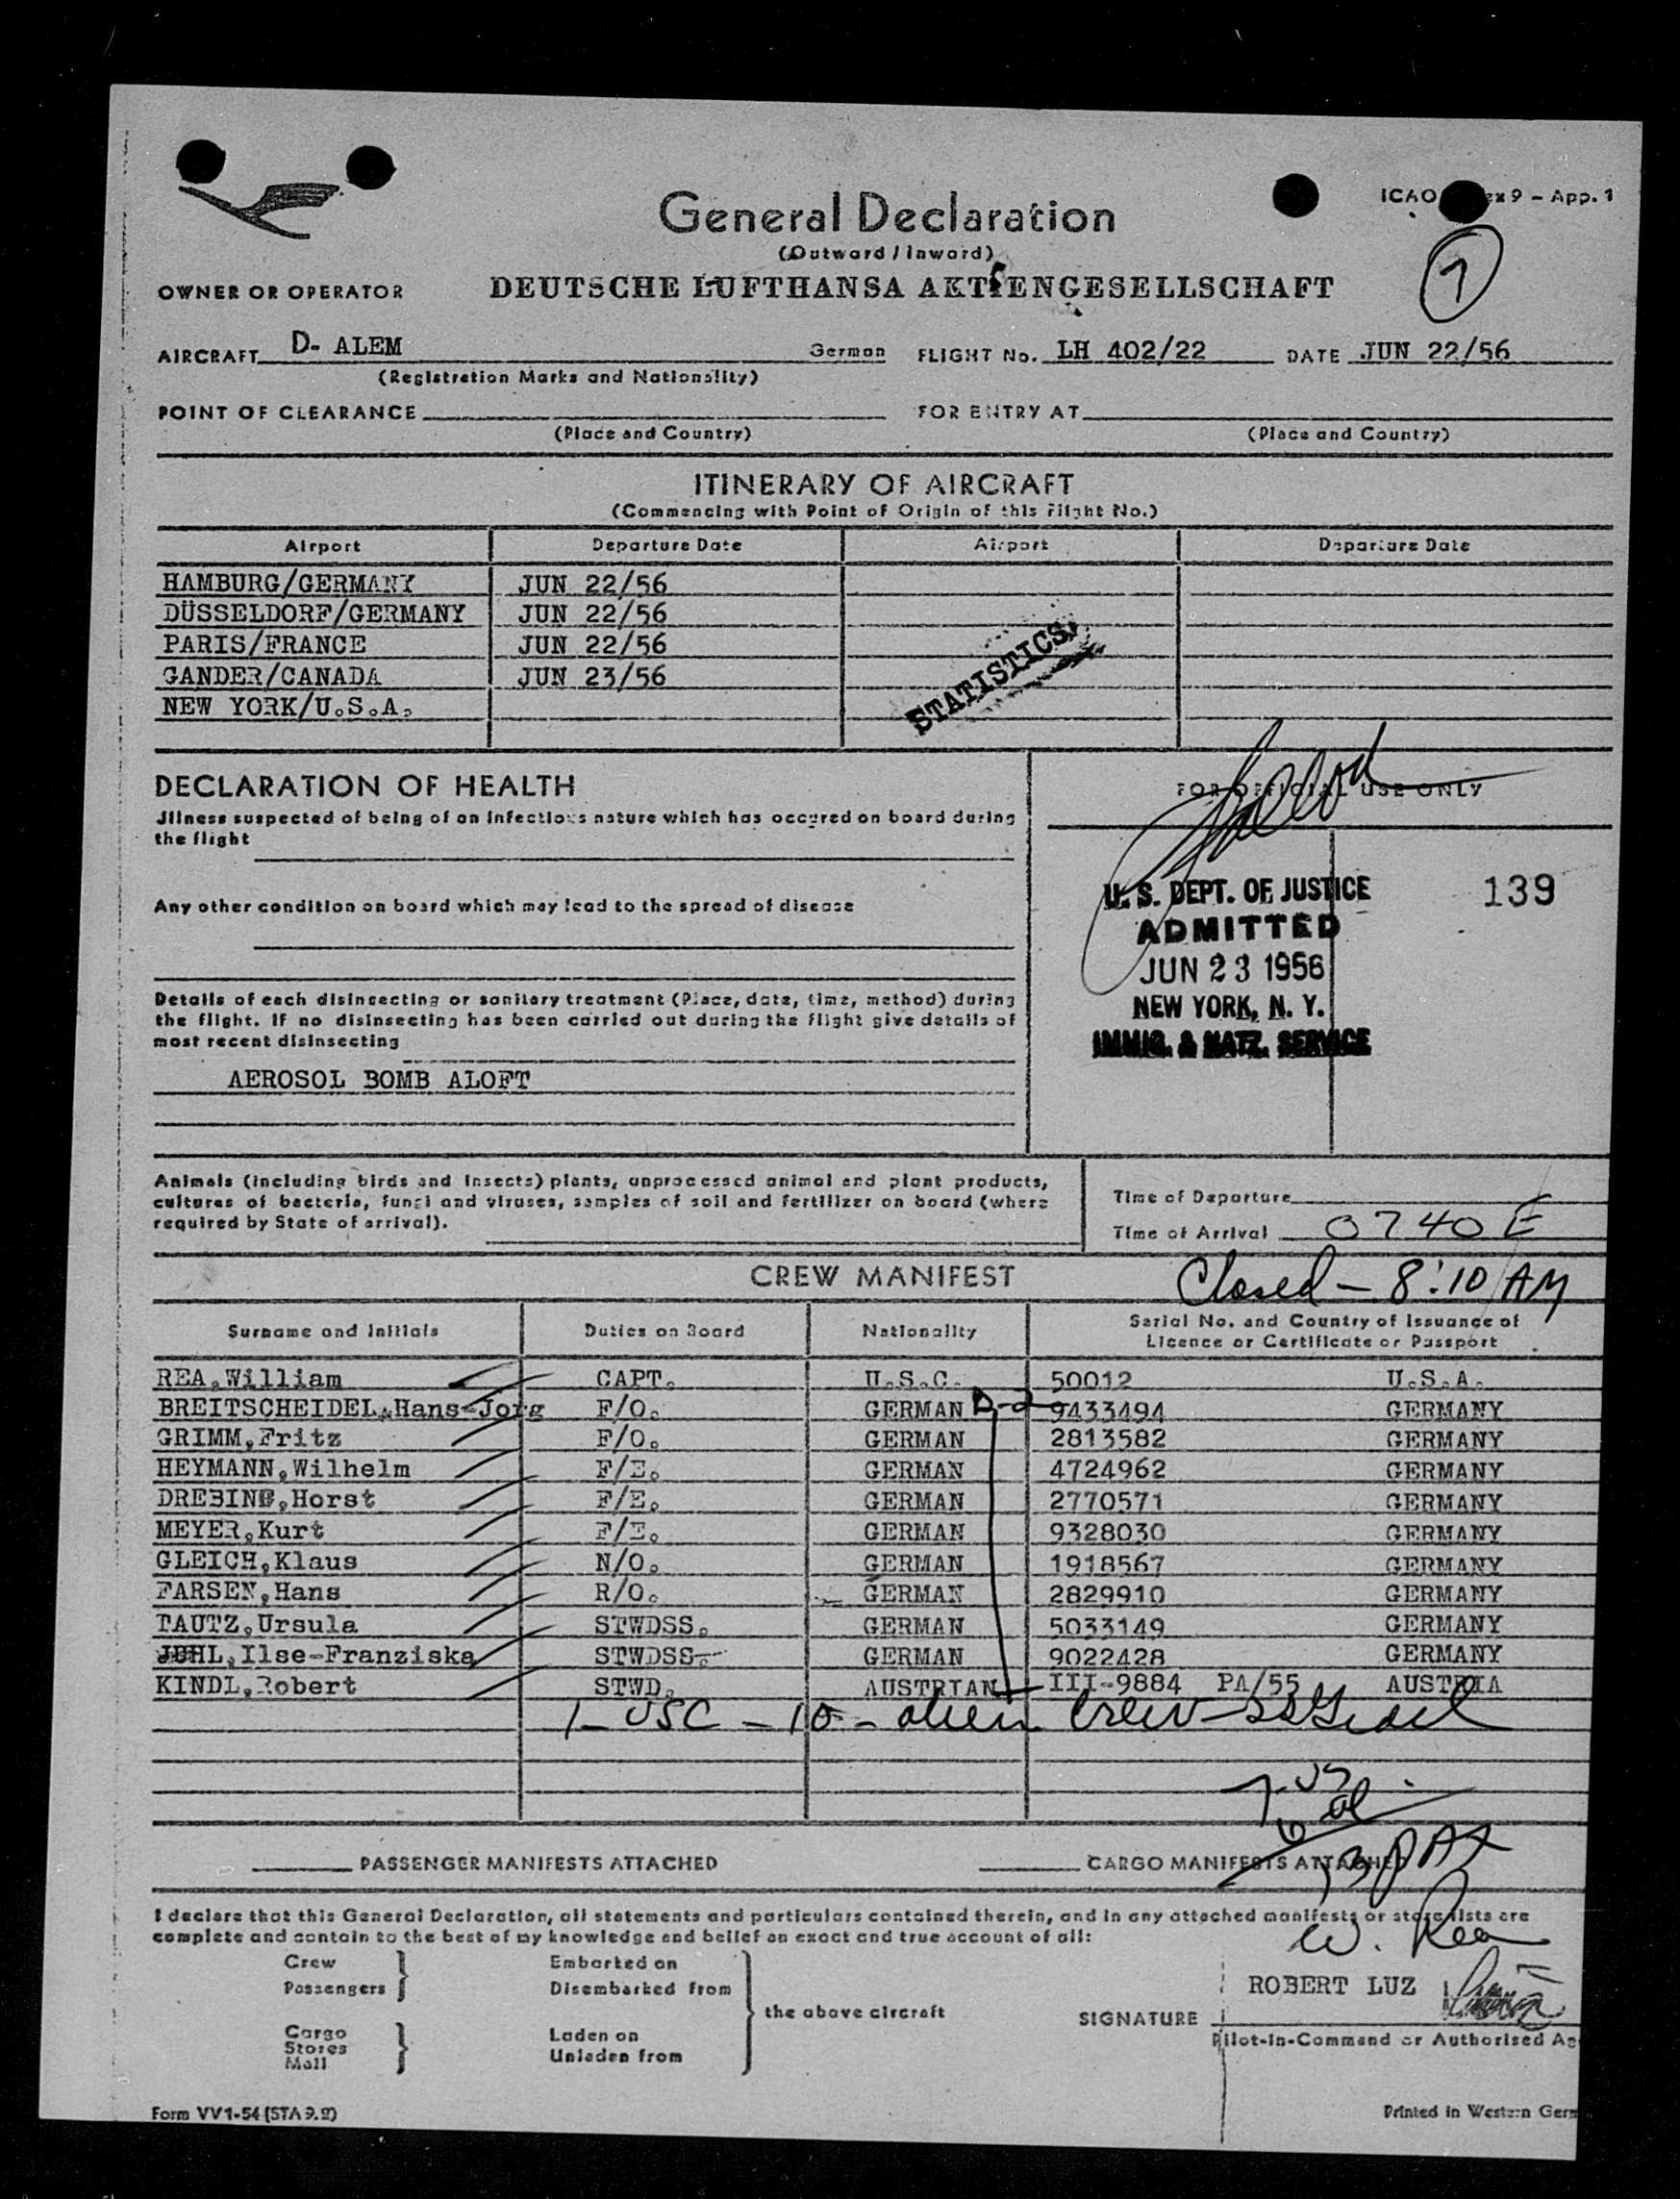 ICAO ex 9 - App. 1
General Declaration
(Outward / Inward)
7
OWNER OR OPERATOR DEUTSCHE LUFTHANSA AKTIENGESELLSCHAFT
AIRCRAFT D- ALEM German FLIGHT No. LH 402/22 DATE JUN 22/56
(Registration Marks and Nationality)
POINT OF CLEARANCE FOR ENTRY AT
(Place and Country) (Place and Country)
ITINERARY OF AIRCRAFT
(Commencing with Point of Origin of this Flight No.)
Airport Departure Date Airport Departure Date
HAMBURG/GERMANY JUN 22/56
DÜSSELDORF/GERMANY JUN 22/56
PARIS/FRANCE JUN 22/56
GANDER/CANADA JUN 23/56
NEW YORK/U.S.A.
STATISTICS
DECLARATION OF HEALTH
FOR OFFICIAL USE ONLY
Jllness suspected of being of an infectious nature which has occured on board during
the flight
Any other condition on board which may lead to the spread of disease
U. S. DEPT. OF JUSTICE 139
ADMITTED
JUN 23 1956
NEW YORK, N. Y.
IMMIG. & NATZ. SERVICE
Details of each disinsecting or sanitary treatment (Place, date, time, method) during
the flight. If no disinsecting has been carried out during the flight give details of
most recent disinsecting
AEROSOL BOMB ALOFT
Animals (including birds and insects) plants, unprocessed animal and plant products,
cultures of bacteria, fungi and viruses, samples of soil and fertilizer on board (where
required by State of arrival).
Time of Departure
Time of Arrival 0740 E
CREW MANIFEST
Closed - 8:10 AM
Surname and Initials Duties on Board Nationality Serial No. and Country of Issuance of
Licence or Certificate or Passport
REA,William CAPT. U.S.C. 50012 U.S.A.
BREITSCHEIDEL,Hans-Jorg F/O. GERMAN D-2 9433494 GERMANY
GRIMM,Fritz F/O. GERMAN 2813582 GERMANY
HEYMANN,Wilhelm F/E. GERMAN 4724962 GERMANY
DREBING,Horst F/E. GERMAN 2770571 GERMANY
MEYER,Kurt F/E. GERMAN 9328030 GERMANY
GLEICH,Klaus N/O. GERMAN 1918567 GERMANY
FARSEN,Hans R/O. GERMAN 2829910 GERMANY
TAUTZ,Ursula STWDSS. GERMAN 5033149 GERMANY
JUHL,Ilse-Franziska STWDSS. GERMAN 9022428 GERMANY
KINDL,Robert STWD. AUSTRIAN III-9884 PA/55 AUSTRIA
1 - USC - 10 - alien crew
7 US
6 al
13 PAX
PASSENGER MANIFESTS ATTACHED CARGO MANIFESTS ATTACHED
I declare that this General Declaration, all statements and particulars contained therein, and in any attached manifests or store lists are
complete and contain to the best of my knowledge and belief an exact and true account of all:
W. Rea
Crew Embarked on
Passengers Disembarked from
the above aircraft
Cargo Laden on
Stores
Mail Unladen from
SIGNATURE ROBERT LUZ
Pilot-in-Command or Authorised Ag
Form VV1-54 (STA 9.2)
Printed in Western Germ